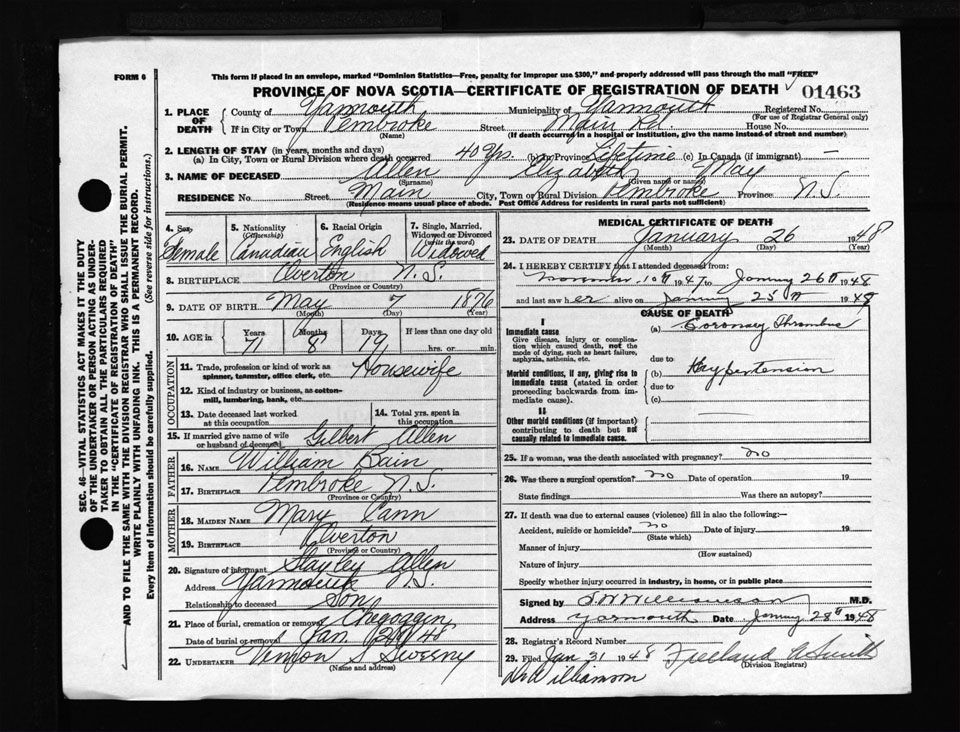 FORM 6
This form if placed in an envelope, marked "Dominion Statistics—Free, penalty for improper use $300," and properly addressed will pass through the mail "FREE"
PROVINCE OF NOVA SCOTIA—CERTIFICATE OF REGISTRATION OF DEATH 01463
1. PLACE OF DEATH County of Yarmouth Municipality of Yarmouth Registered No.
(For use of Registrar General only)
If in City or Town Pembroke Street Main Rd. House No.
(Name) (If death occurred in a hospital or institution, give the name instead of street and number)
2. LENGTH OF STAY (in years, months and days)
(a) In City, Town or Rural Division where death occurred 40 Yrs. (b) In Province Lifetime (c) In Canada (if immigrant) —
3. NAME OF DECEASED Allen Elizabeth May
(Surname) (Given name or names)
RESIDENCE No. Street Main City, Town or Rural Division Pembroke Province N.S.
(Residence means usual place of abode. Post Office Address for residents in rural parts not sufficient)
4. Sex Female
5. Nationality (Citizenship) Canadian
6. Racial Origin English
7. Single, Married, Widowed or Divorced (write the word) Widowed
8. BIRTHPLACE Overton N.S.
(Province or Country)
9. DATE OF BIRTH May 7 1876
(Month) (Day) (Year)
10. AGE in Years Months Days If less than one day old
71 8 19 hrs. or min.
OCCUPATION
11. Trade, profession or kind of work as spinner, teamster, office clerk, etc. Housewife
12. Kind of industry or business, as cotton-mill, lumbering, bank, etc.
13. Date deceased last worked at this occupation
14. Total yrs. spent in this occupation
15. If married give name of wife or husband of deceased Gilbert Allen
FATHER
16. NAME William Bain
17. BIRTHPLACE Pembroke N.S.
(Province or Country)
MOTHER
18. MAIDEN NAME Mary Cann
19. BIRTHPLACE Overton
(Province or Country)
20. Signature of informant Stayley Allen
Address Yarmouth N.S.
Relationship to deceased Son
21. Place of burial, cremation or removal Chegoggin
Date of burial or removal Jan. 48
22. UNDERTAKER Vernon S Sweeny
(Name and address)
MEDICAL CERTIFICATE OF DEATH
23. DATE OF DEATH January 26 1948
(Month) (Day) (Year)
24. I HEREBY CERTIFY that I attended deceased from:
November 10th 1947 to January 26th 1948
and last saw her alive on January 25th 1948
CAUSE OF DEATH
I
Immediate cause (a) Coronary Thrombus
Give disease, injury or complication which caused death, not the mode of dying, such as heart failure, asphyxia, asthenia, etc.
due to
Morbid conditions, if any, giving rise to immediate cause (stated in order proceeding backwards from immediate cause). (b) Hypertension
due to
(c)
II
Other morbid conditions (if important) contributing to death but not causally related to immediate cause.
25. If a woman, was the death associated with pregnancy? no
26. Was there a surgical operation? no Date of operation 19
State findings Was there an autopsy?
27. If death was due to external causes (violence) fill in also the following:—
Accident, suicide or homicide? no Date of injury 19
(State which)
Manner of injury
(How sustained)
Nature of injury
Specify whether injury occurred in industry, in home, or in public place
Signed by S W Williamson M.D.
Address Yarmouth Date January 28th 1948
28. Registrar's Record Number
29. Filed Jan 31 1948 Freeland A Smith
(Division Registrar)
Dr Williamson
SEC. 46—VITAL STATISTICS ACT MAKES IT THE DUTY
OF THE UNDERTAKER OR PERSON ACTING AS UNDER-
TAKER TO OBTAIN ALL THE PARTICULARS REQUIRED
IN THE "CERTIFICATE OF REGISTRATION OF DEATH"
AND TO FILE THE SAME WITH THE DIVISION REGISTRAR WHO SHALL ISSUE THE BURIAL PERMIT.
WRITE PLAINLY WITH UNFADING INK. THIS IS A PERMANENT RECORD.
Every item of information should be carefully supplied. (See reverse side for instructions.)